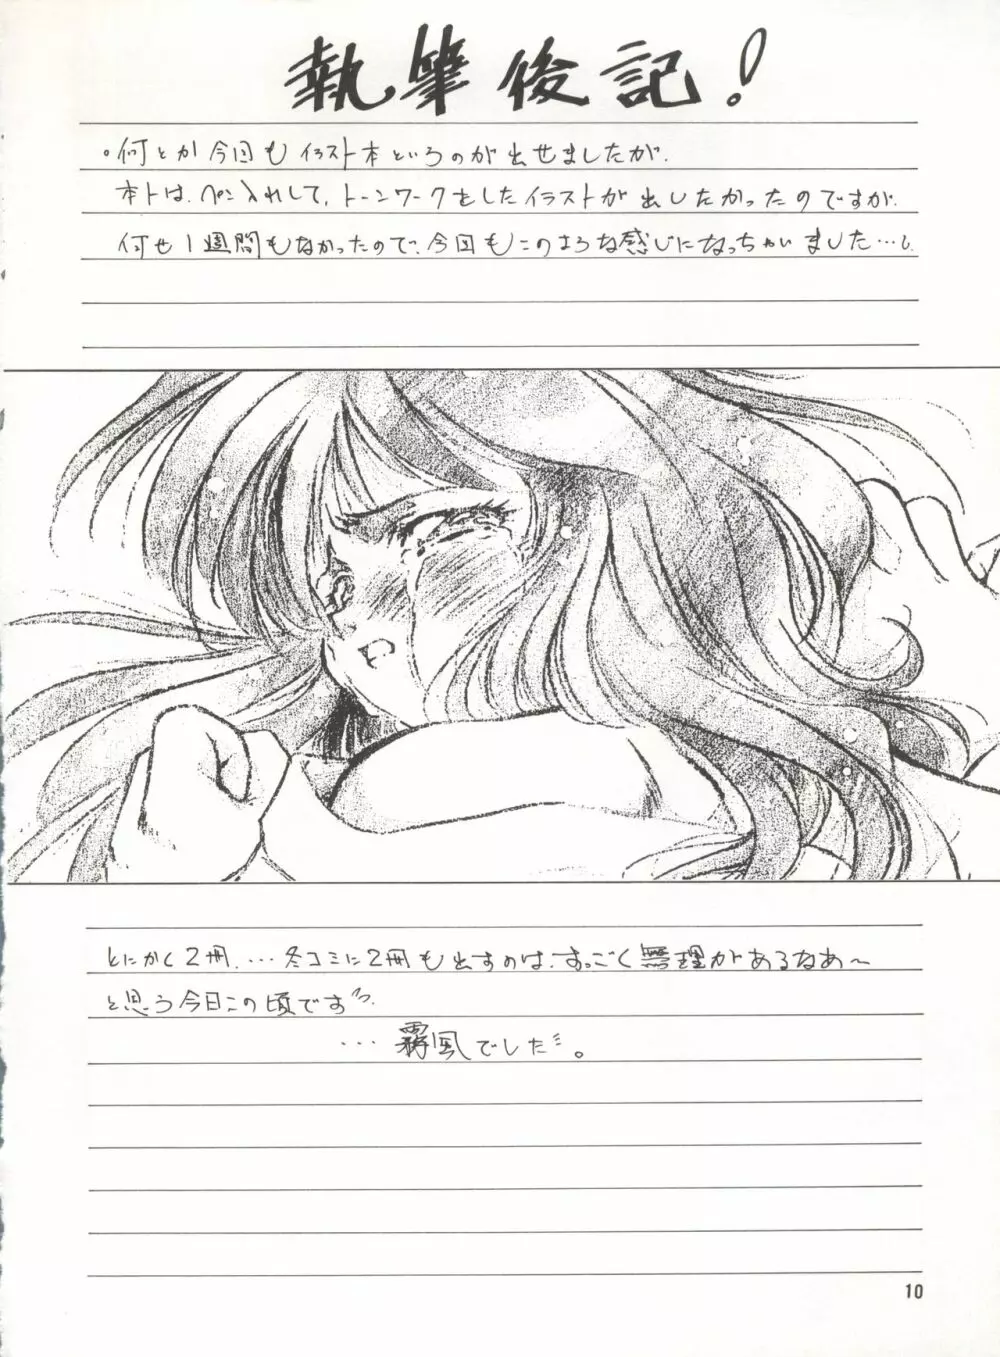 執筆後記!
。何とか今回もイラスト本というのが出せましたが.
本トは、ペン入れして、トーンワークをしたイラストが出したかったのですが.
何せ1週間もなかったので、今回もこのような感じになっちゃいました…
とにかく2冊、…冬コミに2冊も出すのは、すっごく無理があるなあ〜
と思う今日この頃です
…霧風でした。
10